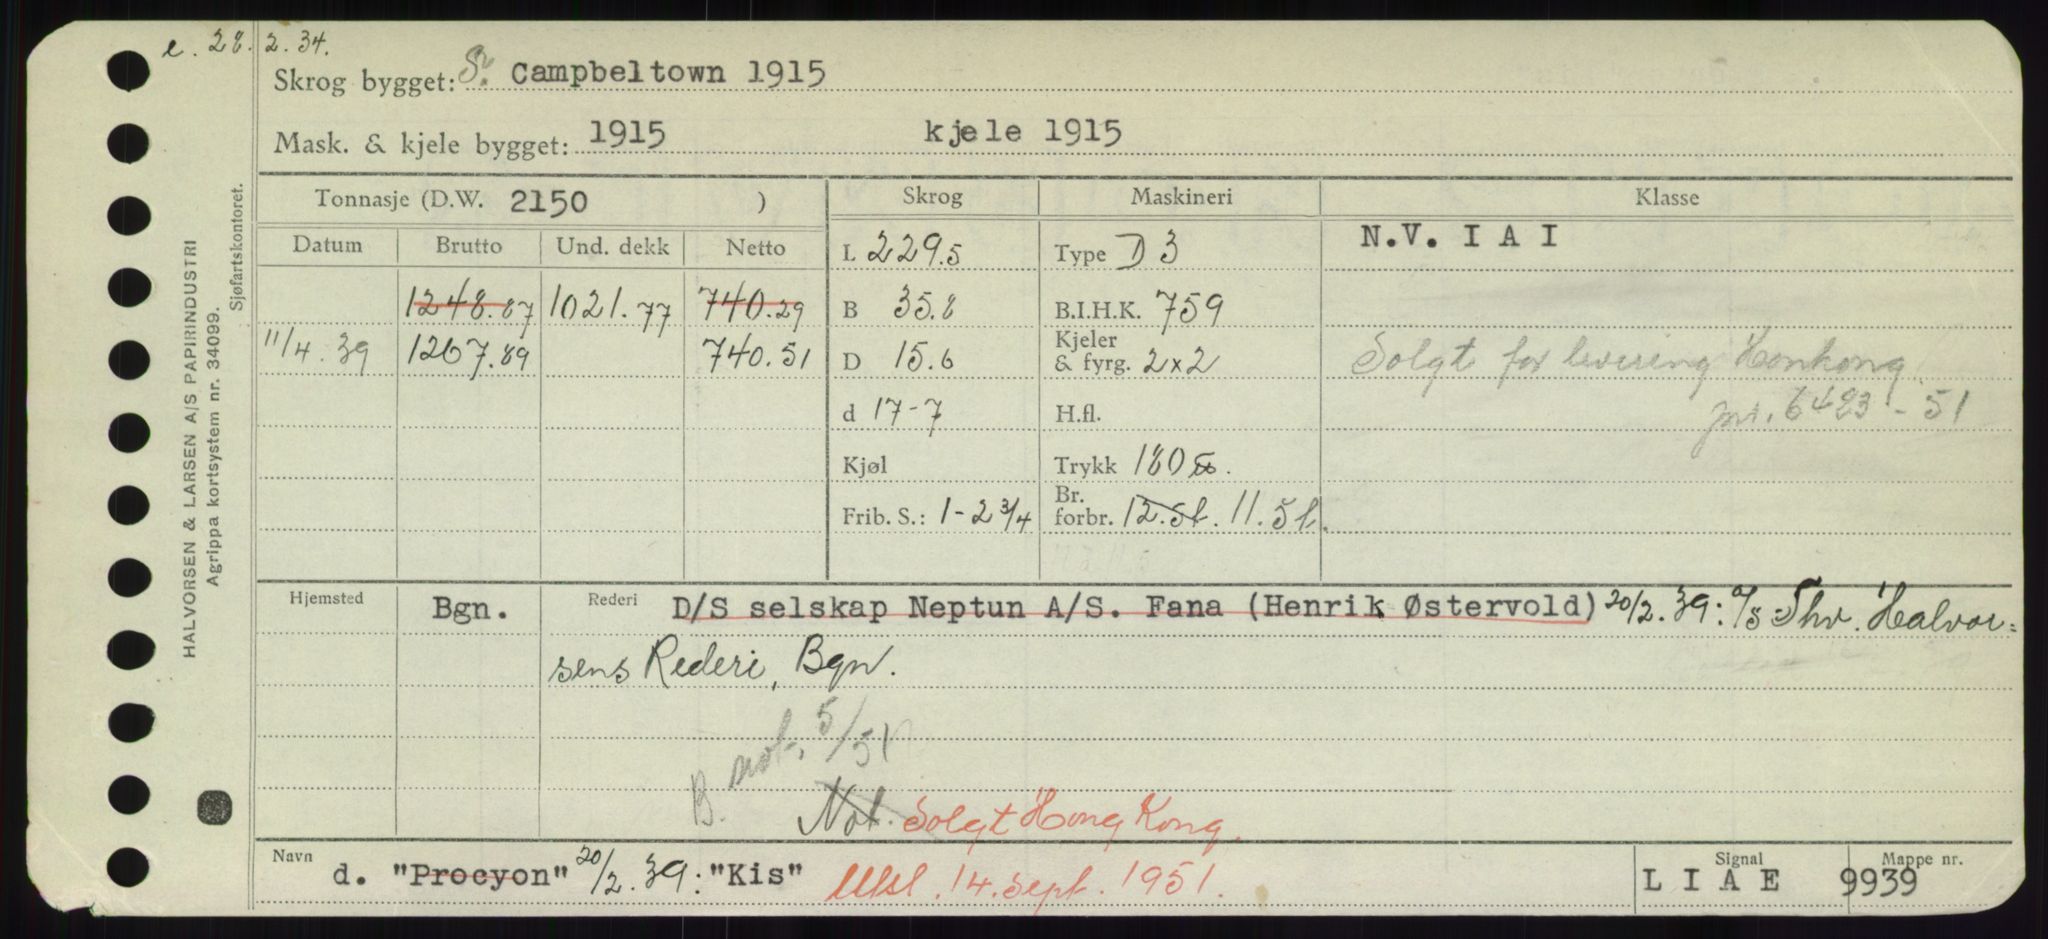 e. 28. 2. 34.
Skrog bygget: S. Campbeltown 1915
Mask. & kjele bygget: 1915 kjele 1915
Tonnasje (D.W. 2150 ) Skrog Maskineri Klasse
Datum Brutto Und. dekk Netto L 229.5 Type D 3 N.V. I A I
1248.87 1021.77 740.29 B 35.8 B.I.H.K. 759
11/4.39 1267.89 740.51 D 15.6 Kjeler & fyrg. 2x2 Solgt for levering Honkong.
d 17-7 H.fl. jnr. 6423-51
Kjøl Trykk 180
Frib. S.: 1-2 3/4 Br. forbr. 12.st. 11.5t.
Hjemsted Bgn. Rederi D/S selskap Neptun A/S. Fana (Henrik Østervold) 20/2.39: A/S Thv. Halvor=
sens Rederi, Bgn.
B. not. 5/51
Not. Solgt Hong Kong.
Navn d. "Procyon" 20/2.39: "Kis" Utsl. 14. Sept. 1951. Signal L I A E Mappe nr. 9939
HALVORSEN & LARSEN A/S PAPIRINDUSTRI
Agrippa kortsystem nr. 34099.
Sjøfartskontoret.